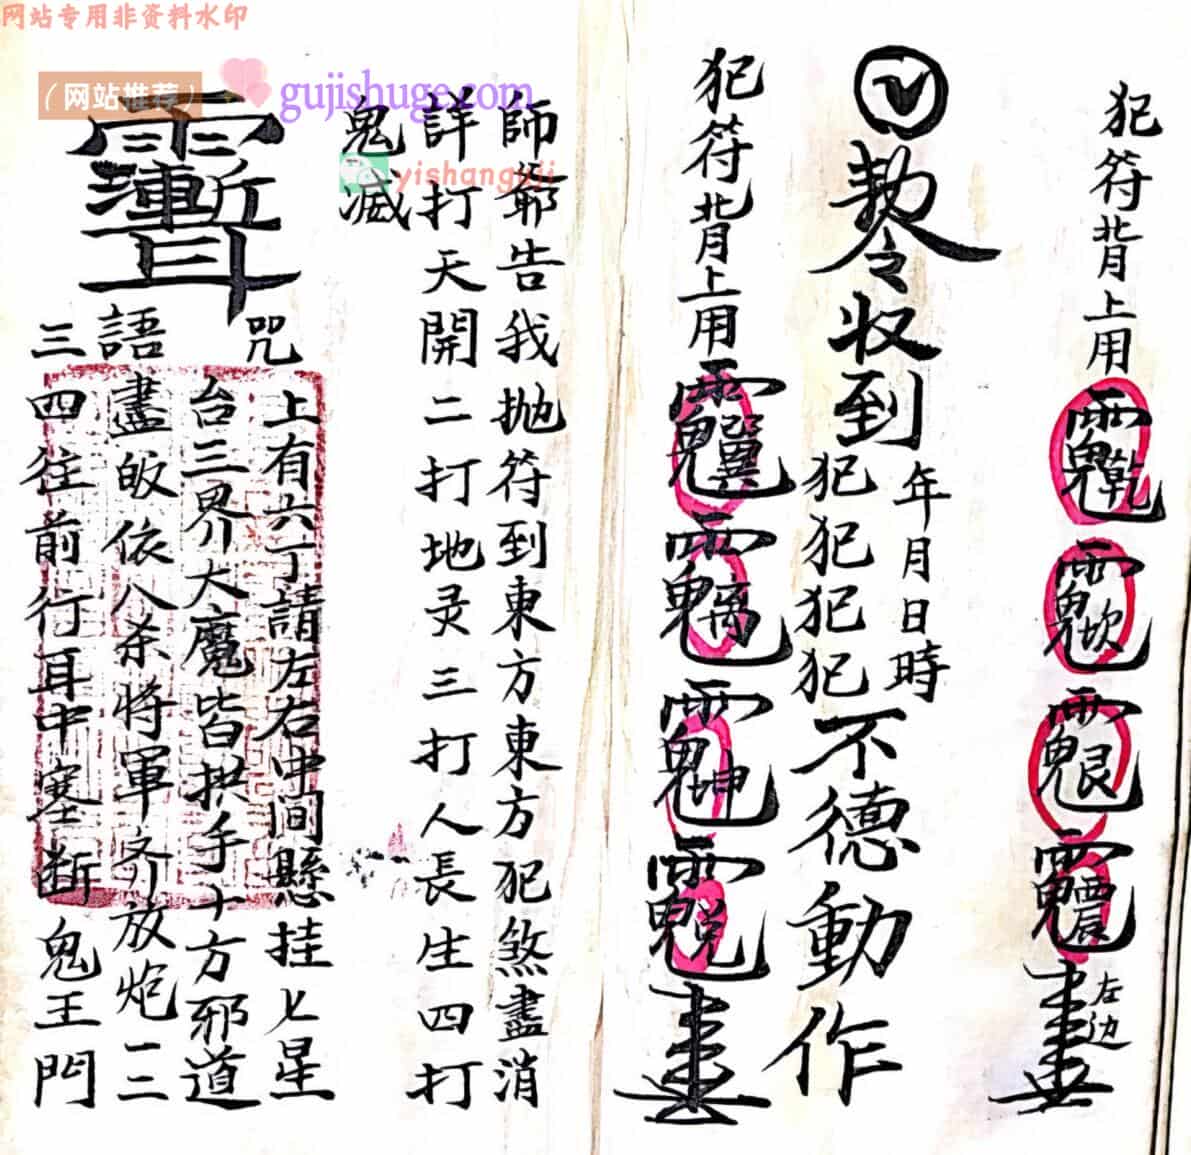 网站专用非资料水印
(网站推荐)
gujishuge.com
yishanguji
犯符背上用
左边
勅令收到
年月日時
犯犯犯犯
不德動作
犯符背上用
師爺告我抛符到東方東方犯煞盡消
詳打天開二打地灵三打人長生四打
鬼滅
咒
語
上有六丁請左右中间懸挂七星
台三界大魔皆拱手十方邪道
盡皈依八杀將軍齐放炮一二
三四往前行耳中塞断鬼王門